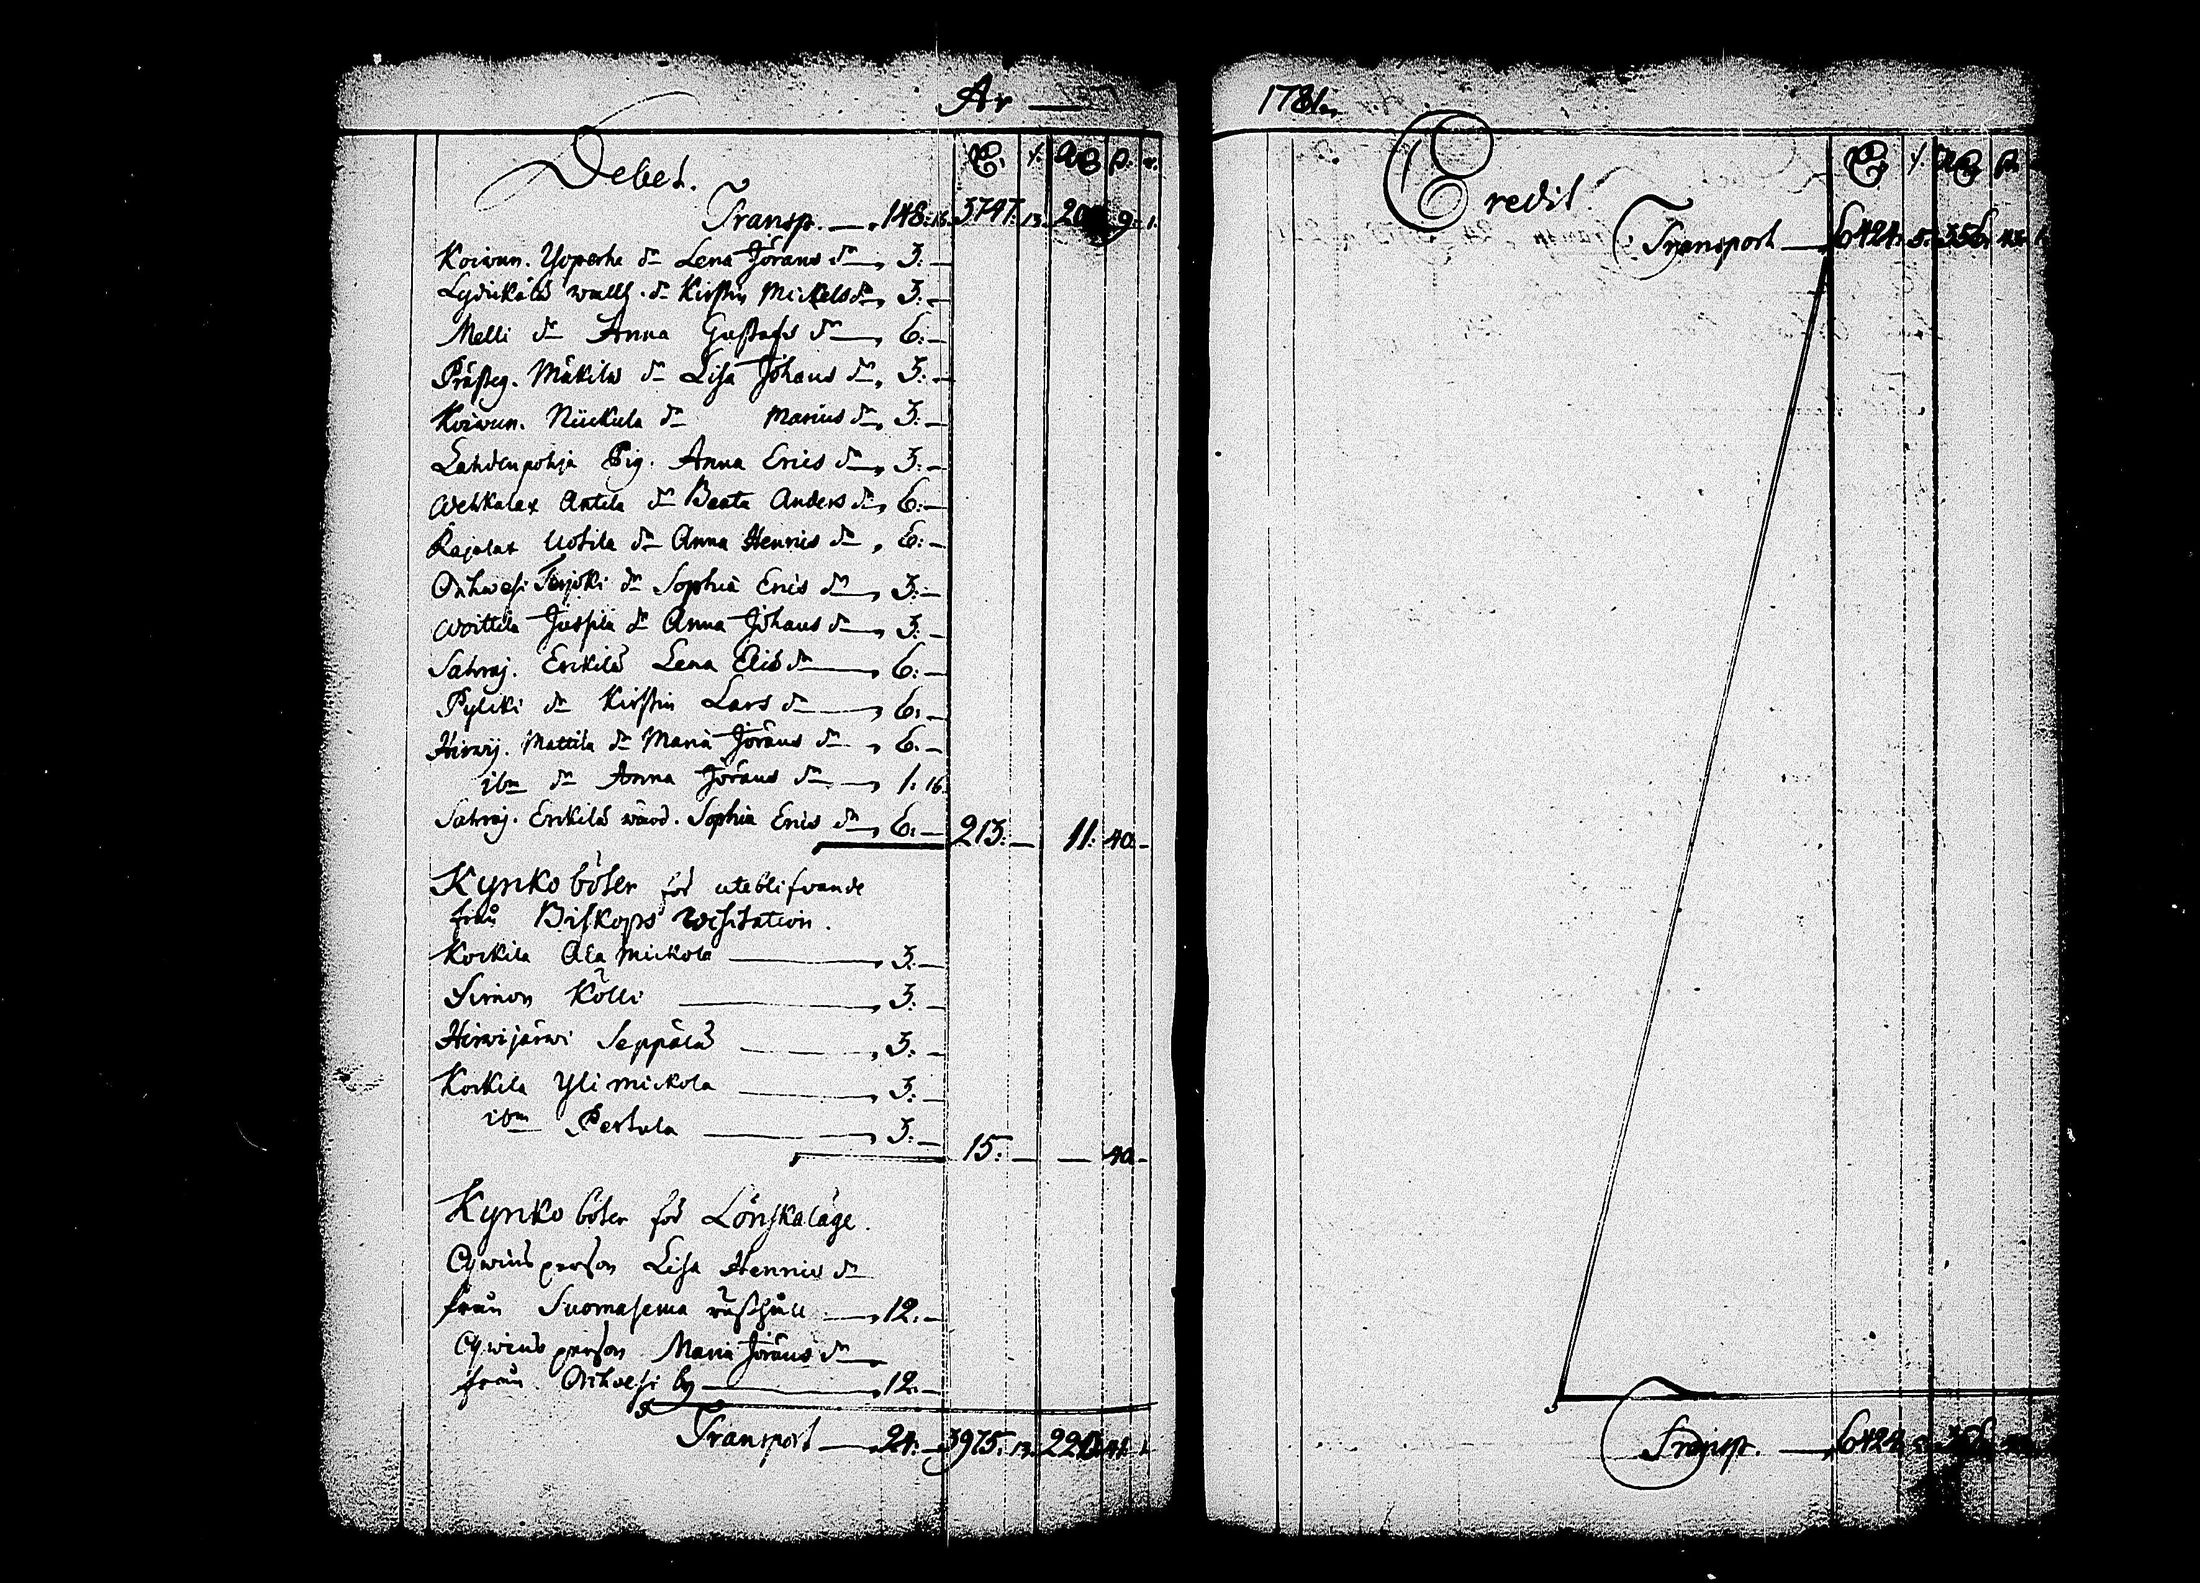 År —
Debet.
Transp. — 148: 16. 3747: 13. 9: 1.
Koiwun. Yoperhe dr Lena Jörans dr — 3: —
Lydikälä wallh. dr Kirstin Mickelsdr 3: —
Melli dr Anna Gustafs dr — 6: —
Prästeg. Mäkilä dr Lisa Johans dr 3: —
Koiwun. Nickula dr Marius dr 3: —
Lahdenpohja Pig. Anna Erics dr 3: —
Wehkalax Antila dr Beata Anders dr 6: —
Rajalax Uotila dr Anna Henrics dr 6: —
Orihwesi Terjoki dr Sophia Erics dr 3: —
Woittila Jussila dr Anna Johans dr 3: —
Sahraj. Erickilä Lena Elis dr — 6: —
Pylcki dr Kirstin Lars dr — 6: —
Hirwij. Mattila dr Maria Jörans dr 6: —
ibm dr Anna Jörans dr — 1: 16.
Sahraj. Erickilä wärd. Sophia Erics dr 6: — 213: — 11: 40: —
Kyrko böter för uteblifvande
från Biskops Wisitation.
Korkila Ala Mickola — 3: —
Simon Kölli — 3: —
Hirwijärwi Seppälä — 3: —
Korkila Yli mickola — 3: —
ibm Pertula — 3: — 15: — — 40 —
Kyrko böter för Lönskaläge.
Qwins person Lisa Henrics dr
från Suomasema rusthåll — 12: —
Qwins person Maria Jörans dr
från Orihwesi by — 12: —
Transport — 24: — 3975: 13.
1781.
Credit.
Transport — 6424: 5: 356:
Transp. — 6424: